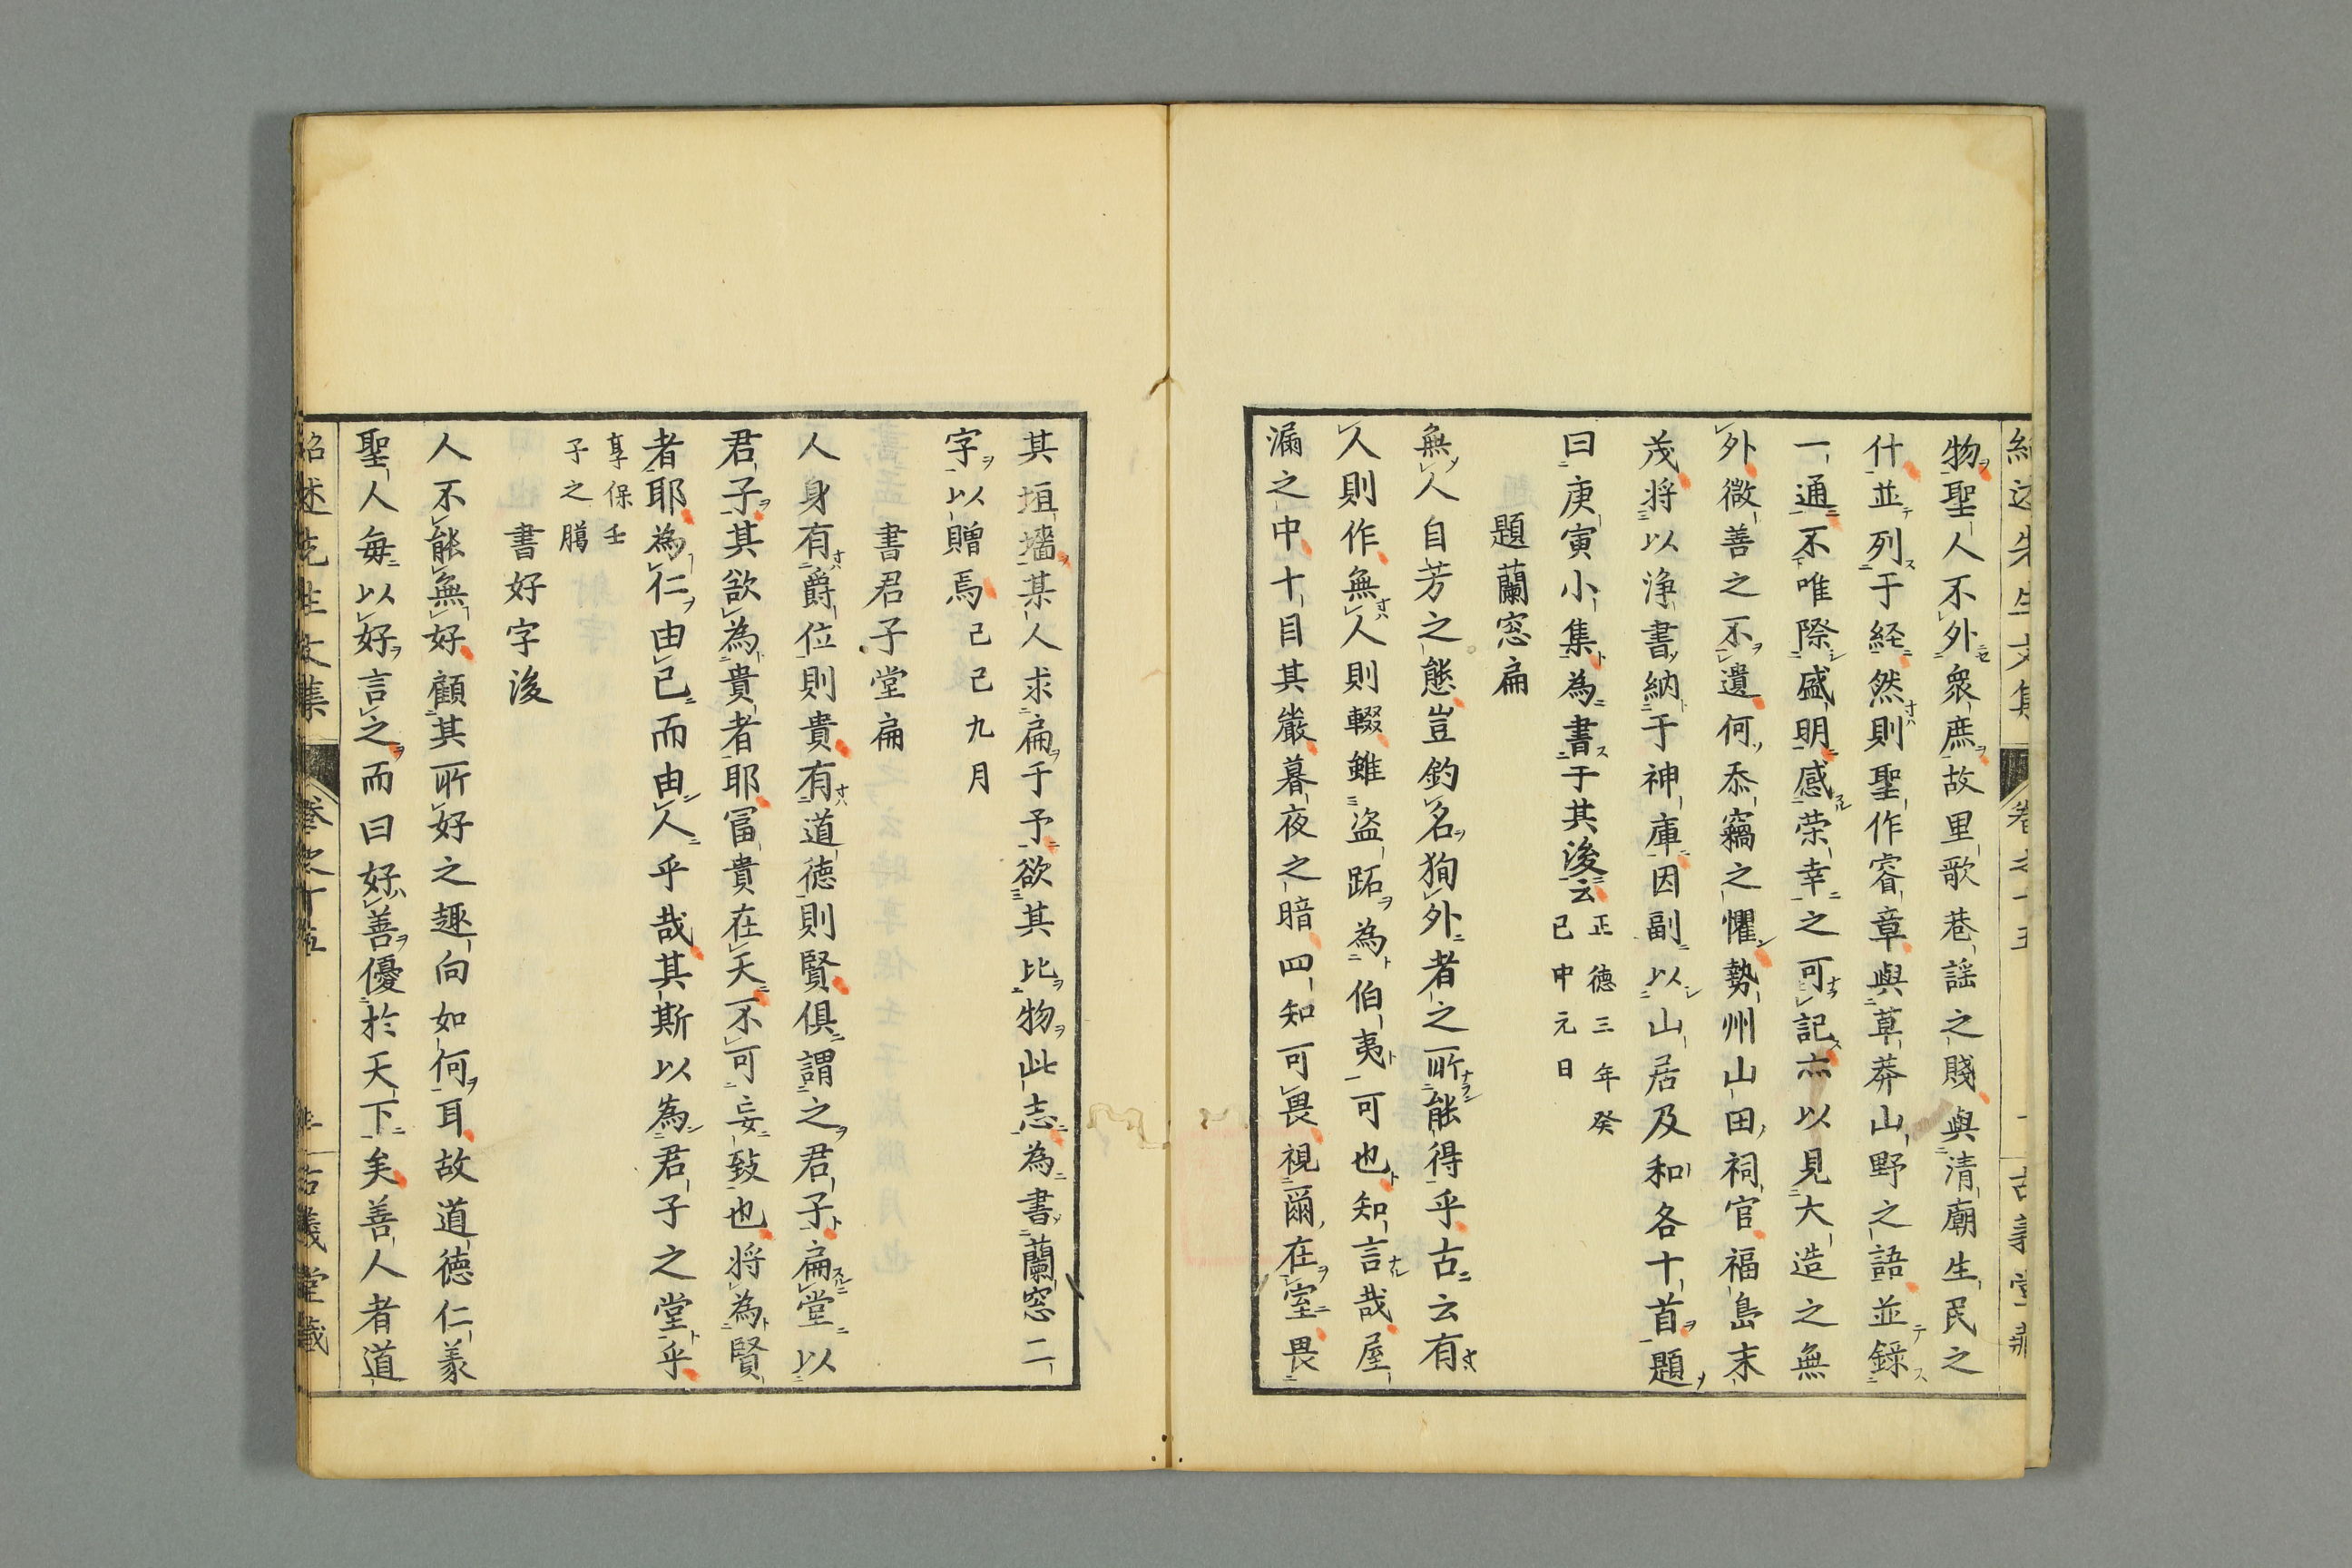 物聖人不外衆庶故里歌巷謡之賤與清廟生民之
什並列于経然則聖作睿章與草莽山野之語並録
一通不唯際盛明感荣幸之可記亦以見大造之無
外微善之不遺何忝竊之懼勢州山田祠官福島末
茂将以浄書納于神庫因副以山居及和各十首題
曰庚寅小集為書于其後云
正徳三年癸
巳中元日
題蘭窓扁
無人自芳之態豈釣名狥外者之所能得乎古云有
人則作無人則輟雖盗跖為伯夷可也知言哉屋
漏之中十目其嚴暮夜之暗四知可畏視爾在室畏
其垣墻某人求扁于予欲其比物此志為書蘭窓二
字以贈焉
己巳九月
書君子堂扁
人身有爵位則貴有道徳則賢俱謂之君子扁堂以
君子其欲為貴者耶冨貴在天不可妄致也将為賢
者耶為仁由己而由人乎哉其斯以為君子之堂乎
享保壬
子之臈
書好字後
人不能無好顧其所好之趣向如何耳故道徳仁義
聖人毎以好言之而曰好善優於天下矣善人者道
紹述先生文集
巻之十五
古義堂蔵